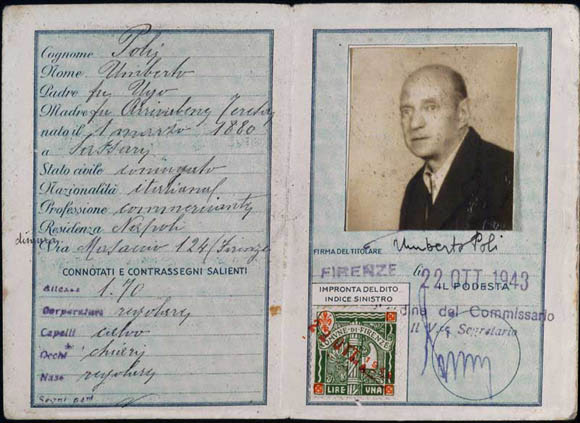 Cognome Poli
Nome Umberto
Padre fu Ugo
Madre fu Arrivabene Teresa
nato il 1 marzo 1880
a Sassari
Stato civile coniugato
Nazionalità italiana
Professione commerciante
Residenza Napoli
dimora
Via Masaccio 124/Firenze
CONNOTATI E CONTRASSEGNI SALIENTI
Altezza 1.70
Corporatura regolare
Capelli calvo
Occhi chiari
Naso regolare
Segni part
FIRMA DEL TITOLARE Umberto Poli
FIRENZE li 22 OTT 1943
IMPRONTA DEL DITO
INDICE SINISTRO
IL PODESTÀ
dine del Commissario
Il Segretario
COMUNE DI FIRENZE
LIRE UNA